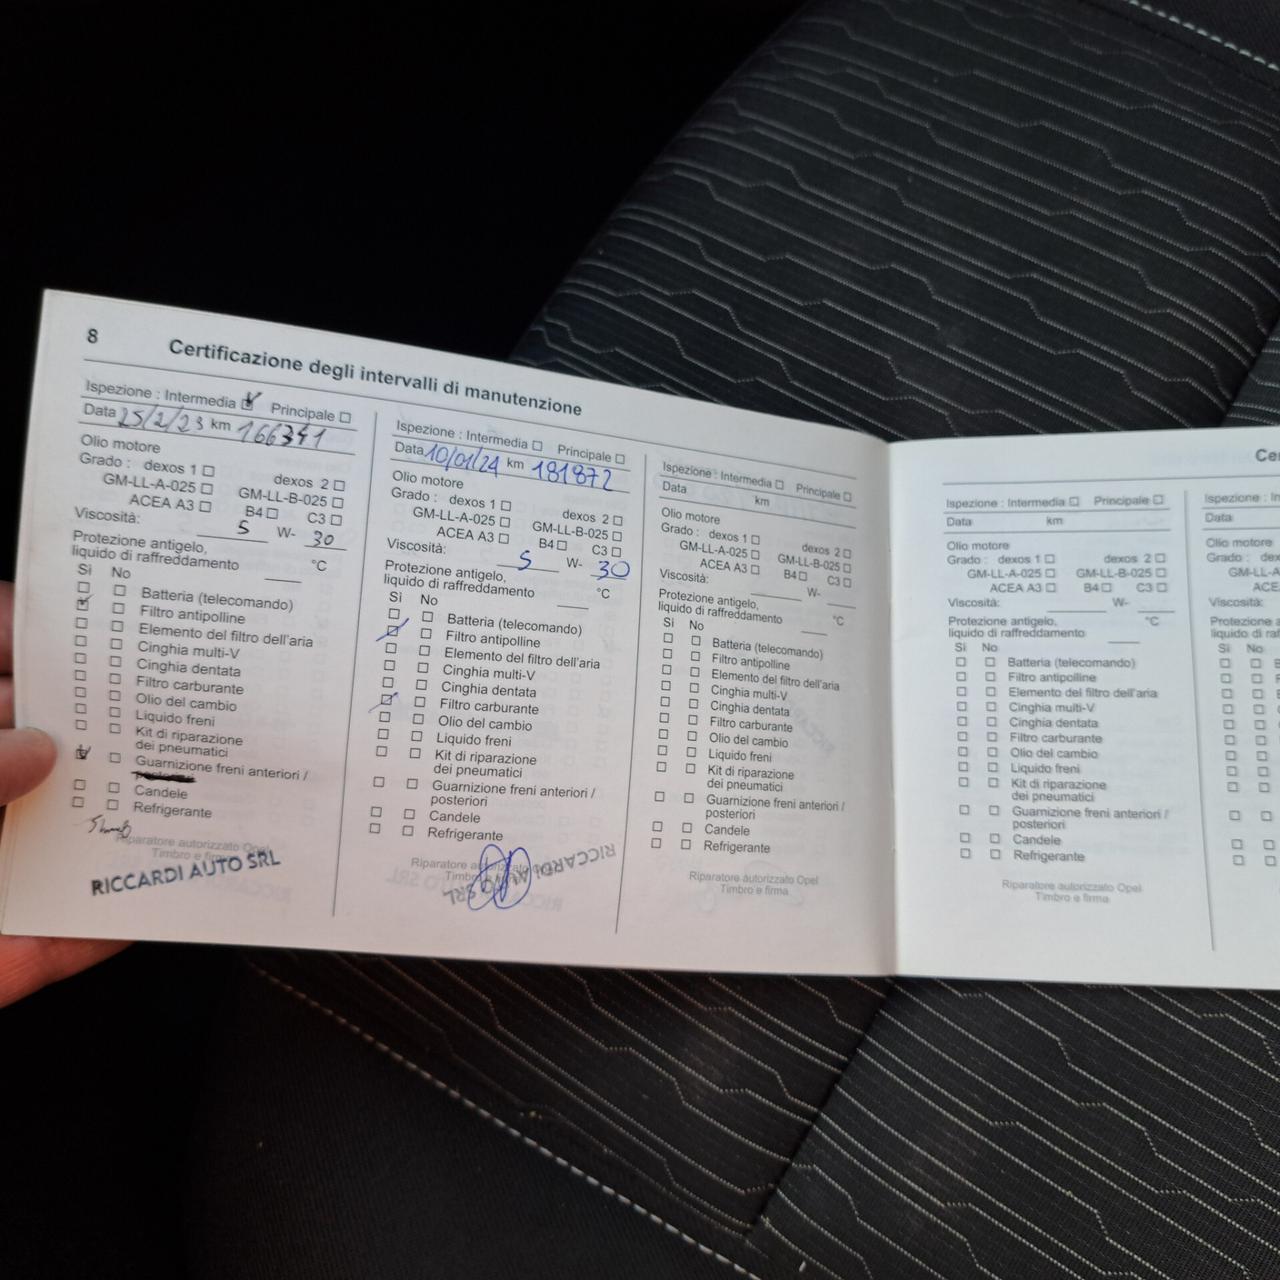 8 Certificazione degli intervalli di manutenzione
Ispezione : Intermedia ☑ Principale ☐
Data 25/2/23 km 166341
Olio motore
Grado : dexos 1 ☐ dexos 2 ☐
GM-LL-A-025 ☐ GM-LL-B-025 ☐
ACEA A3 ☐ B4 ☐ C3 ☐
Viscosità: 5 W- 30
Protezione antigelo,
liquido di raffreddamento °C
Sì No
☐ ☐ Batteria (telecomando)
☑ ☐ Filtro antipolline
☐ ☐ Elemento del filtro dell'aria
☐ ☐ Cinghia multi-V
☐ ☐ Cinghia dentata
☐ ☐ Filtro carburante
☐ ☐ Olio del cambio
☐ ☐ Liquido freni
☐ ☐ Kit di riparazione
dei pneumatici
☑ ☐ Guarnizione freni anteriori /
posteriori
☐ ☐ Candele
☐ ☐ Refrigerante
Riparatore autorizzato Opel
Timbro e firma
RICCARDI AUTO SRL
Ispezione : Intermedia ☐ Principale ☐
Data 10/01/24 km 181872
Olio motore
Grado : dexos 1 ☐ dexos 2 ☐
GM-LL-A-025 ☐ GM-LL-B-025 ☐
ACEA A3 ☐ B4 ☐ C3 ☐
Viscosità: 5 W- 30
Protezione antigelo,
liquido di raffreddamento °C
Sì No
☐ ☐ Batteria (telecomando)
☑ ☐ Filtro antipolline
☐ ☐ Elemento del filtro dell'aria
☐ ☐ Cinghia multi-V
☐ ☐ Cinghia dentata
☑ ☐ Filtro carburante
☐ ☐ Olio del cambio
☐ ☐ Liquido freni
☐ ☐ Kit di riparazione
dei pneumatici
☐ ☐ Guarnizione freni anteriori /
posteriori
☐ ☐ Candele
☐ ☐ Refrigerante
Riparatore autorizzato Opel
Timbro e firma
RICCARDI AUTO SRL
Ispezione : Intermedia ☐ Principale ☐
Data km
Olio motore
Grado : dexos 1 ☐ dexos 2 ☐
GM-LL-A-025 ☐ GM-LL-B-025 ☐
ACEA A3 ☐ B4 ☐ C3 ☐
Viscosità: W-
Protezione antigelo,
liquido di raffreddamento °C
Sì No
☐ ☐ Batteria (telecomando)
☐ ☐ Filtro antipolline
☐ ☐ Elemento del filtro dell'aria
☐ ☐ Cinghia multi-V
☐ ☐ Cinghia dentata
☐ ☐ Filtro carburante
☐ ☐ Olio del cambio
☐ ☐ Liquido freni
☐ ☐ Kit di riparazione
dei pneumatici
☐ ☐ Guarnizione freni anteriori /
posteriori
☐ ☐ Candele
☐ ☐ Refrigerante
Riparatore autorizzato Opel
Timbro e firma
Ispezione : Intermedia ☐ Principale ☐
Data km
Olio motore
Grado : dexos 1 ☐ dexos 2 ☐
GM-LL-A-025 ☐ GM-LL-B-025 ☐
ACEA A3 ☐ B4 ☐ C3 ☐
Viscosità: W-
Protezione antigelo, °C
liquido di raffreddamento
Sì No
☐ ☐ Batteria (telecomando)
☐ ☐ Filtro antipolline
☐ ☐ Elemento del filtro dell'aria
☐ ☐ Cinghia multi-V
☐ ☐ Cinghia dentata
☐ ☐ Filtro carburante
☐ ☐ Olio del cambio
☐ ☐ Liquido freni
☐ ☐ Kit di riparazione
dei pneumatici
☐ ☐ Guarnizione freni anteriori /
posteriori
☐ ☐ Candele
☐ ☐ Refrigerante
Riparatore autorizzato Opel
Timbro e firma
Cer
Ispezione : Inter
Data
Olio motore
Grado : dex
GM-LL-A
ACE
Viscosità:
Protezione a
liquido di raf
Sì No